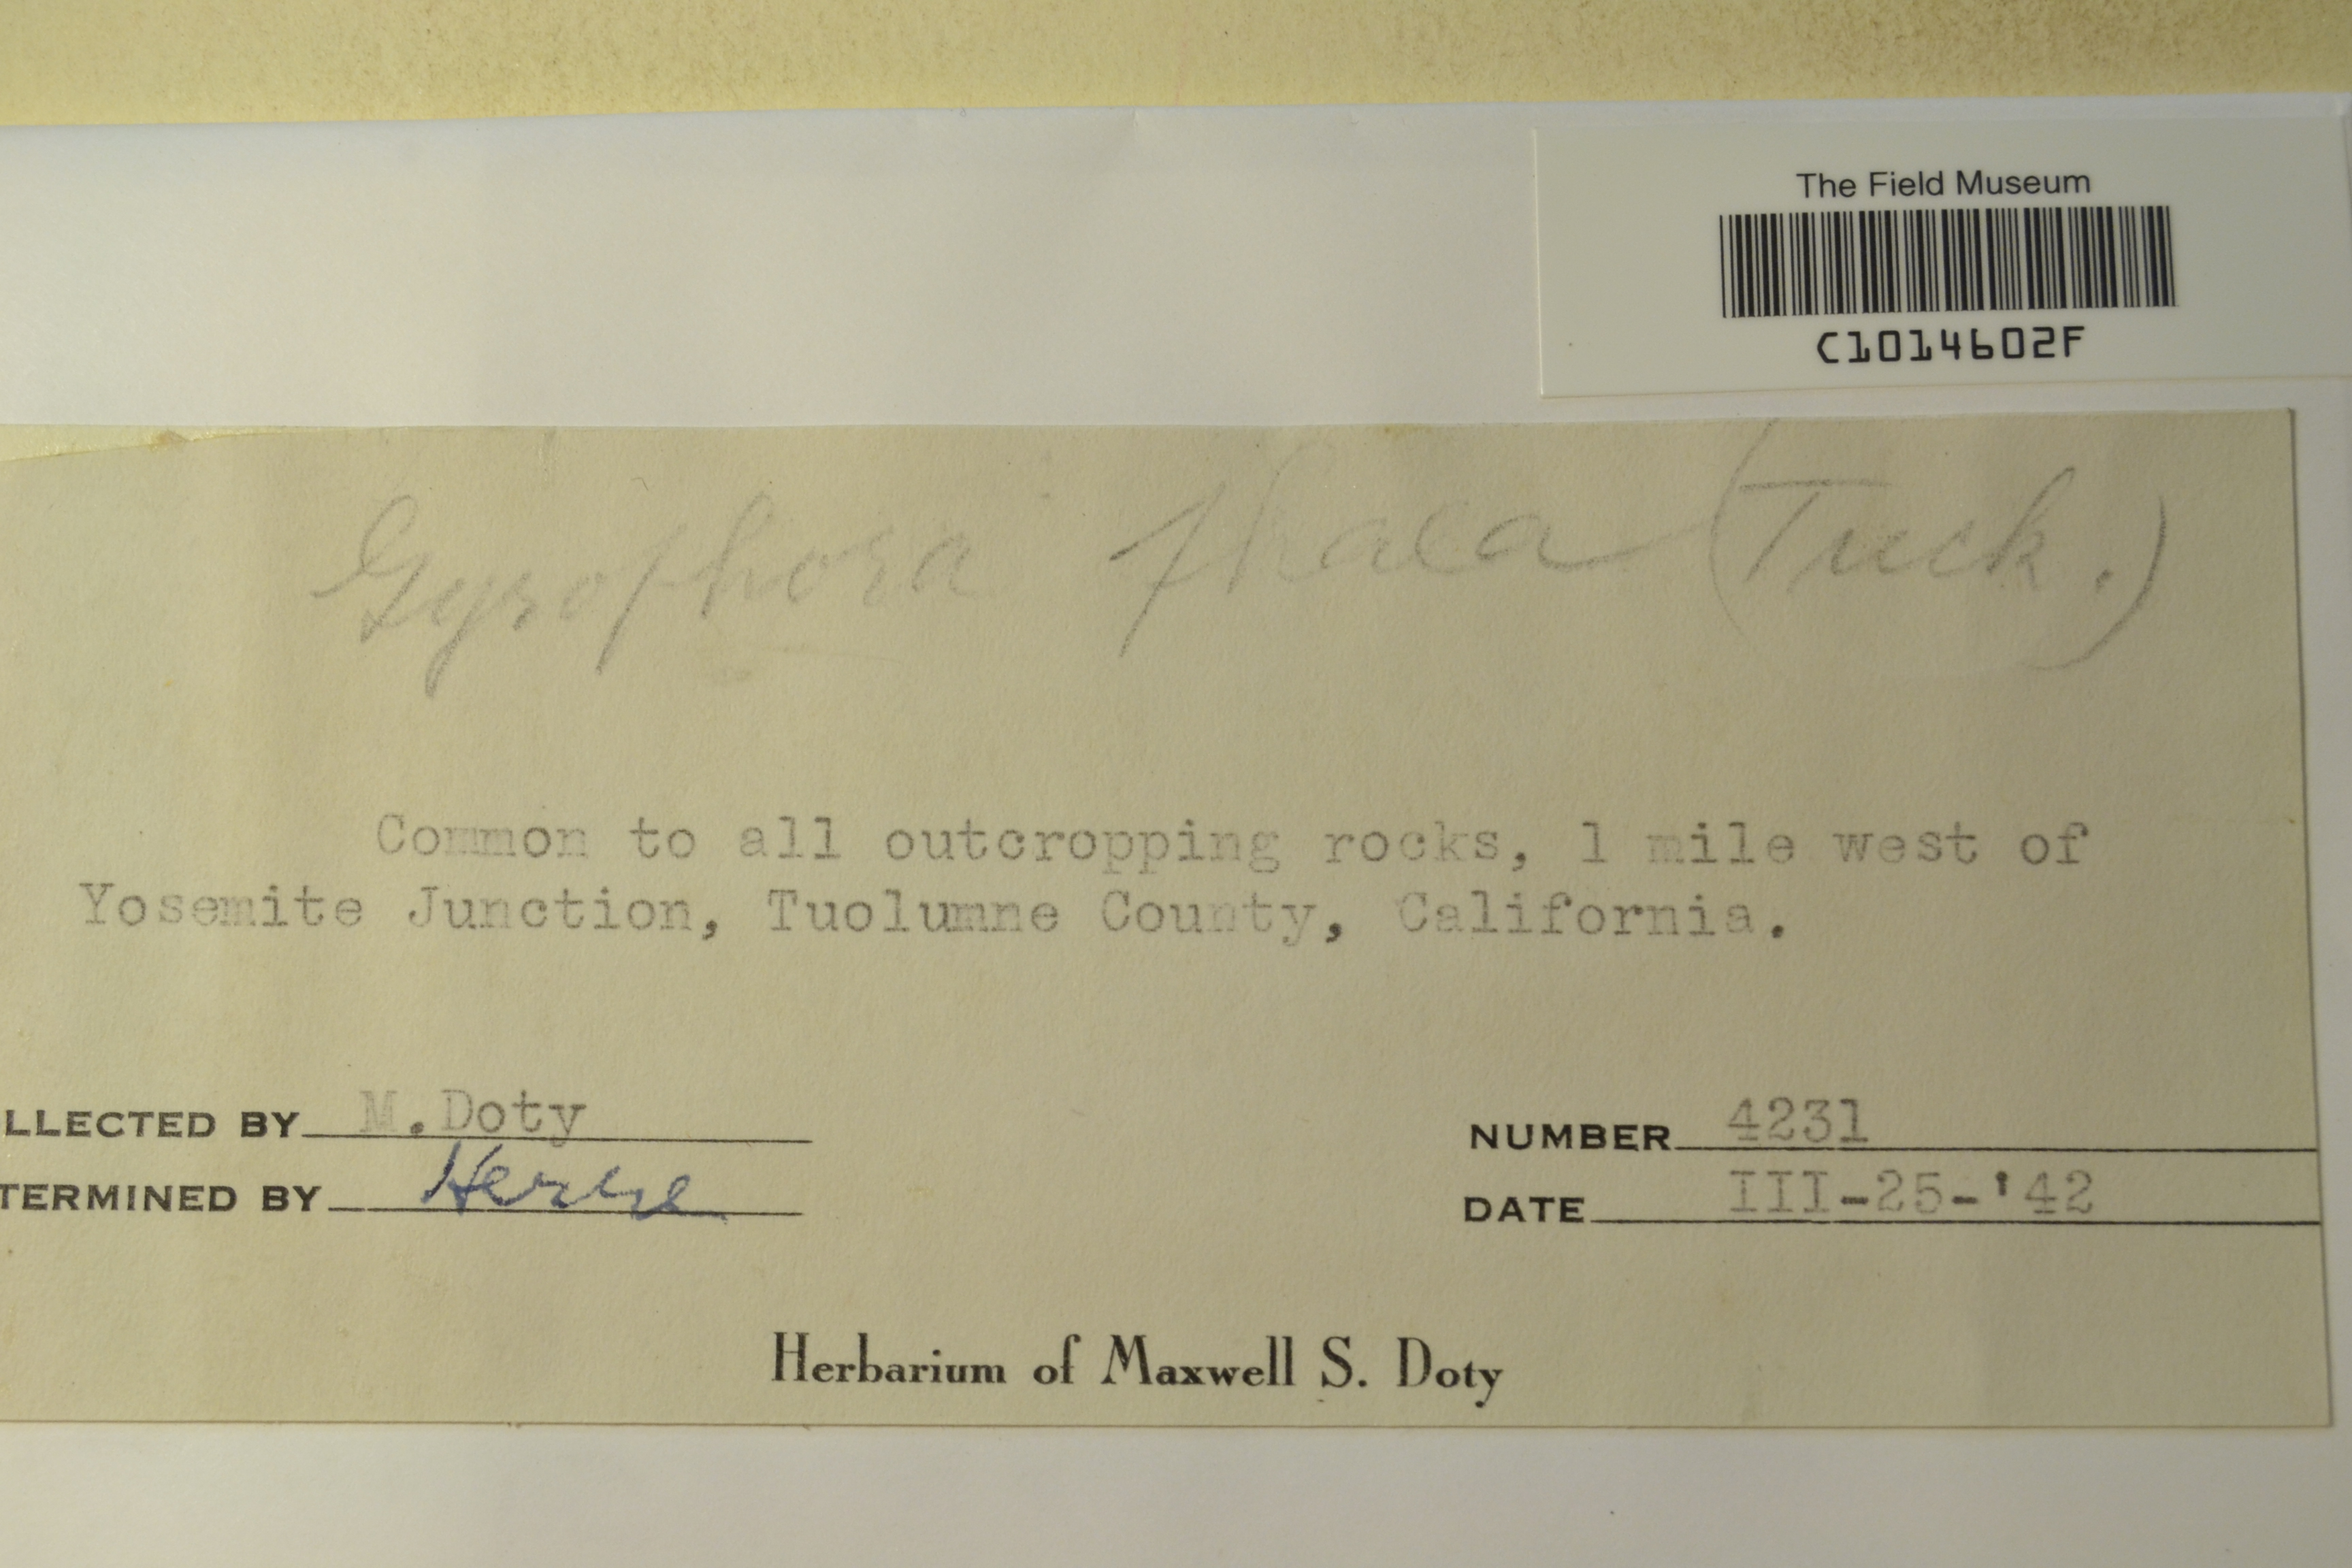 The Field Museum
C1014602F
Gyrophora phaea (Tuck.)
Common to all outcropping rocks, 1 mile west of
Yosemite Junction, Tuolumne County, California.
LLECTED BY M.Doty
NUMBER 4231
TERMINED BY Herre
DATE III-25-'42
Herbarium of Maxwell S. Doty